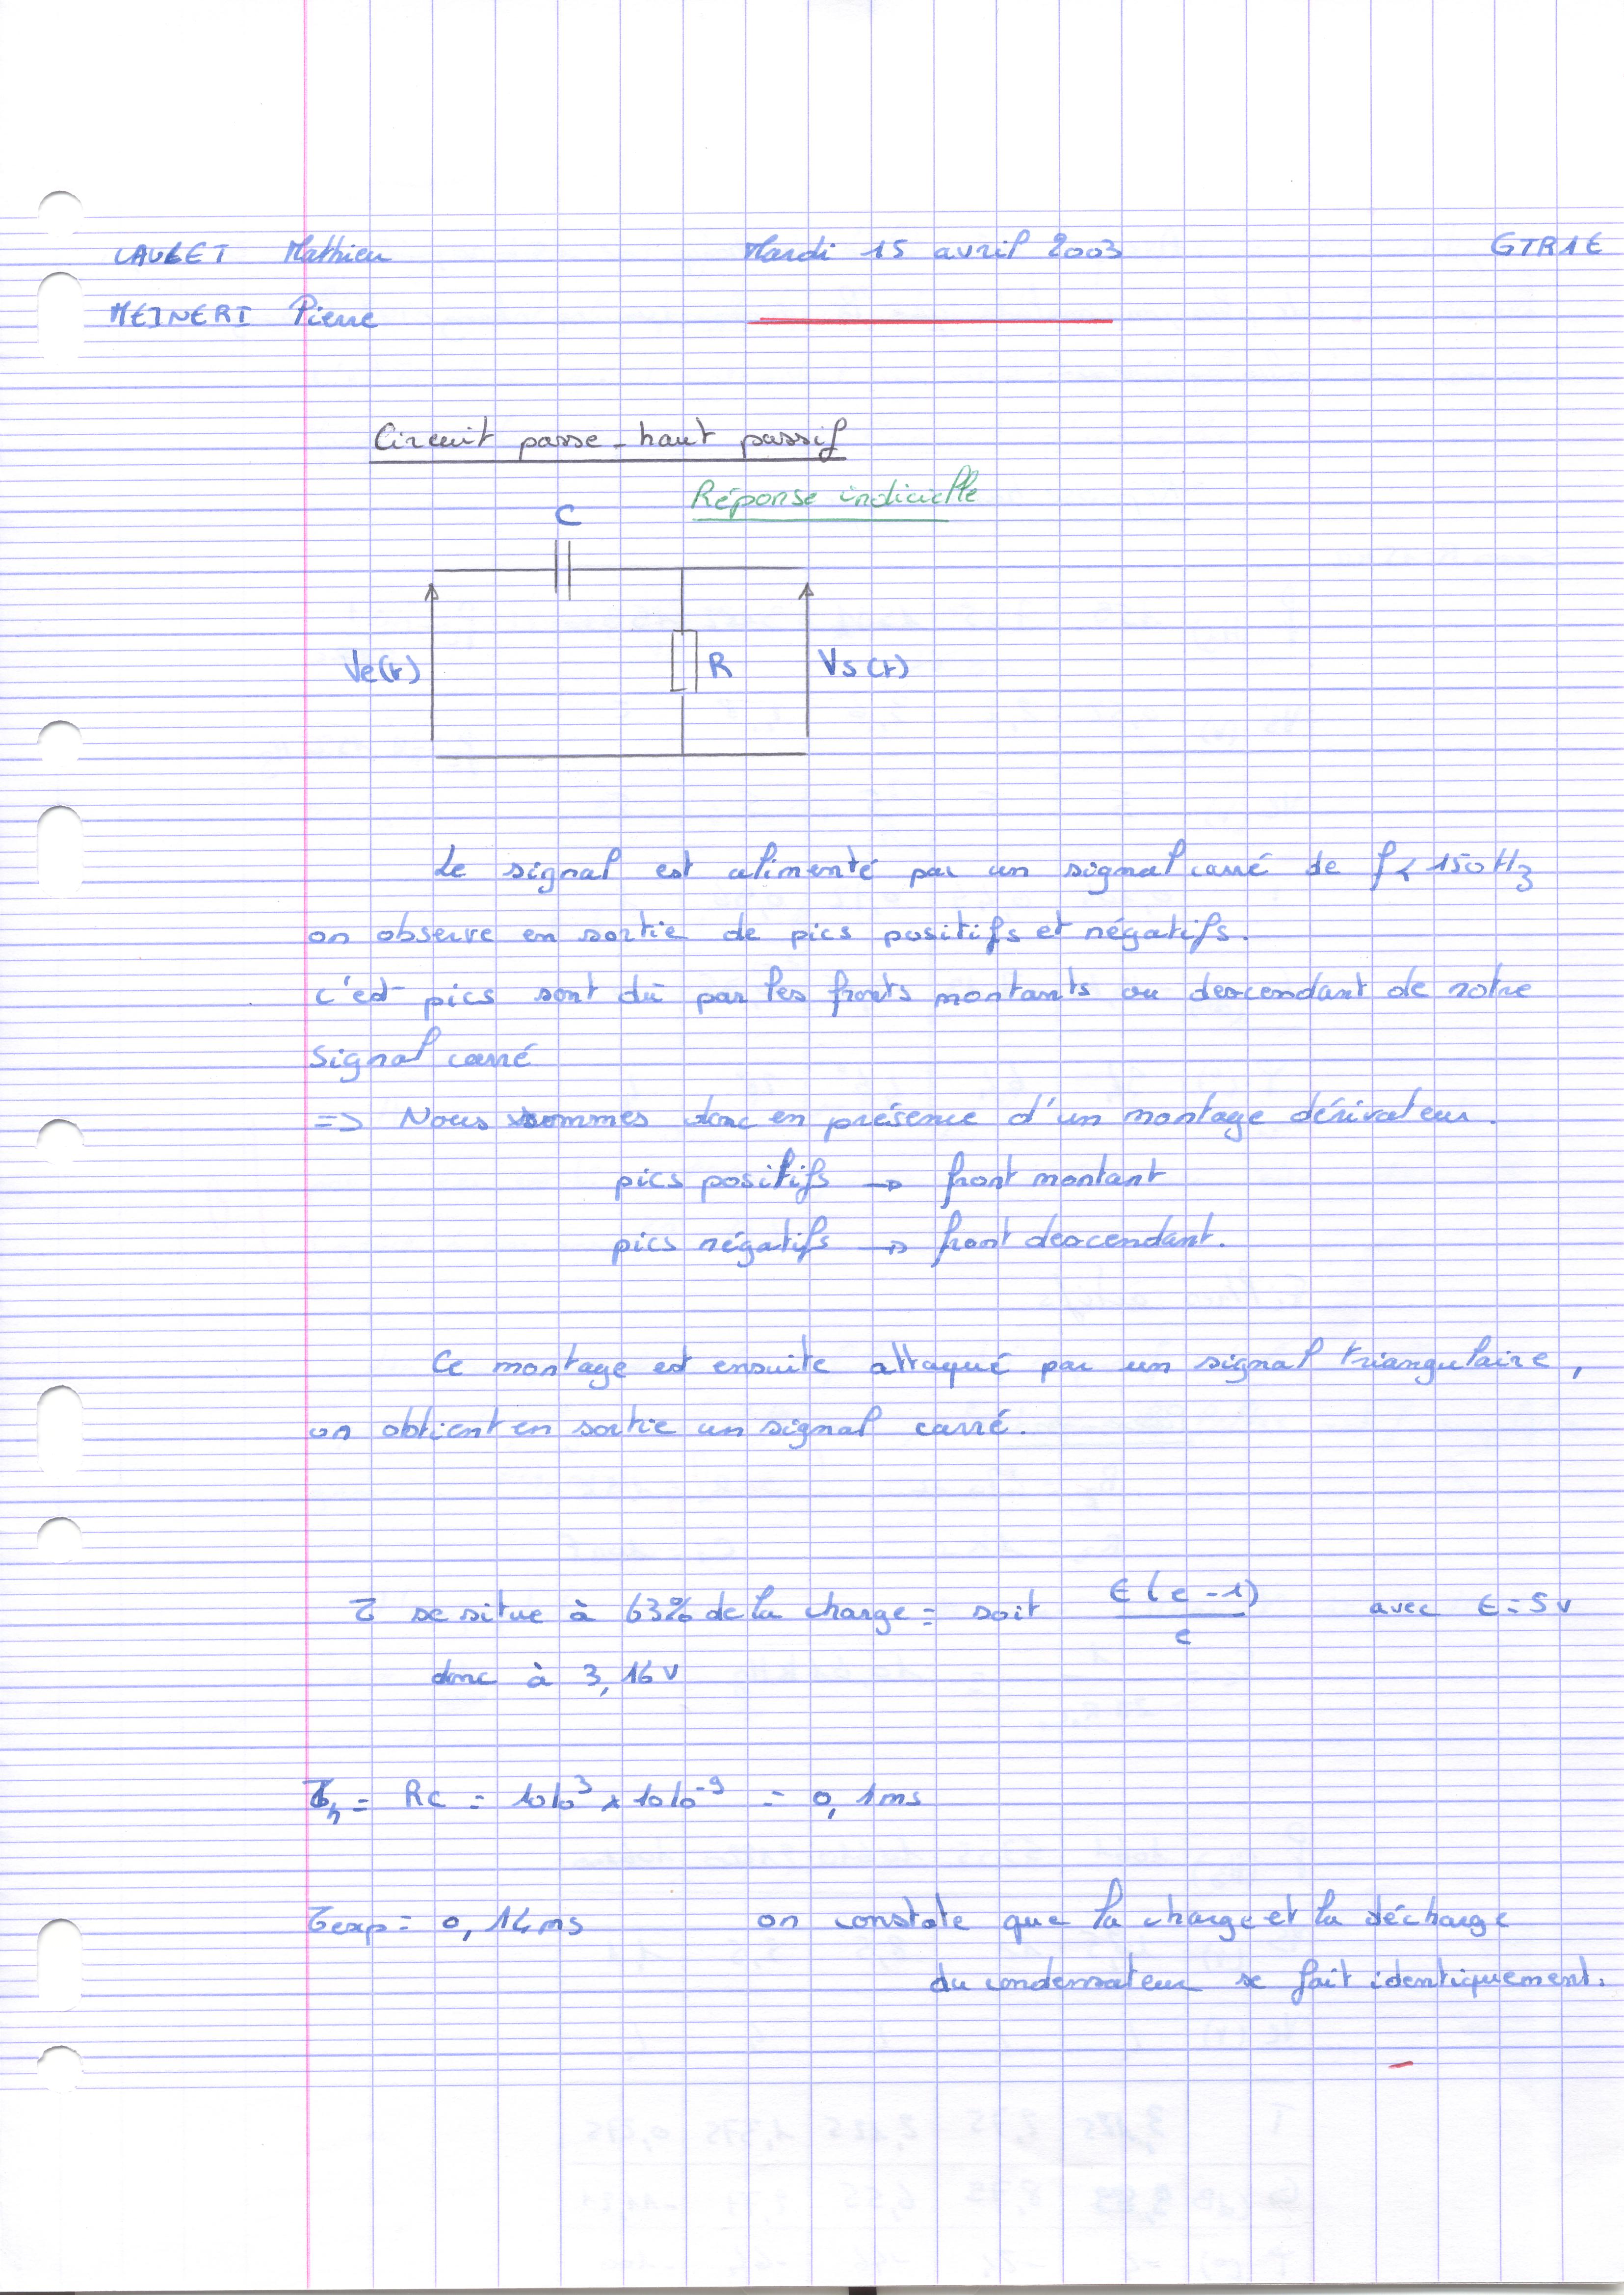 LAUGET Mathieu Mardi 15 avril 2003 GTR1E
MEINERI Pierre
Circuit passe-haut passif
Réponse indicielle
C
Ve(t) R Vs(t)
Le signal est alimenté par un signal carré de f < 150 Hz
on observe en sortie de pics positifs et négatifs.
c'est pics sont dû par les fronts montants ou descendant de notre
signal carré
=> Nous sommes donc en présence d'un montage dérivateur.
pics positifs → front montant
pics négatifs → front descendant.
Ce montage est ensuite attaqué par un signal triangulaire,
on obtient en sortie un signal carré.
τ se situe à 63% de la charge = soit E(e-1)/e avec E = 5v
donc à 3,16 v
τh = RC = 10 10^3 x 10 10^-9 = 0,1ms
τexp = 0,14ms on constate que la charge et la décharge
du condensateur se fait identiquement.